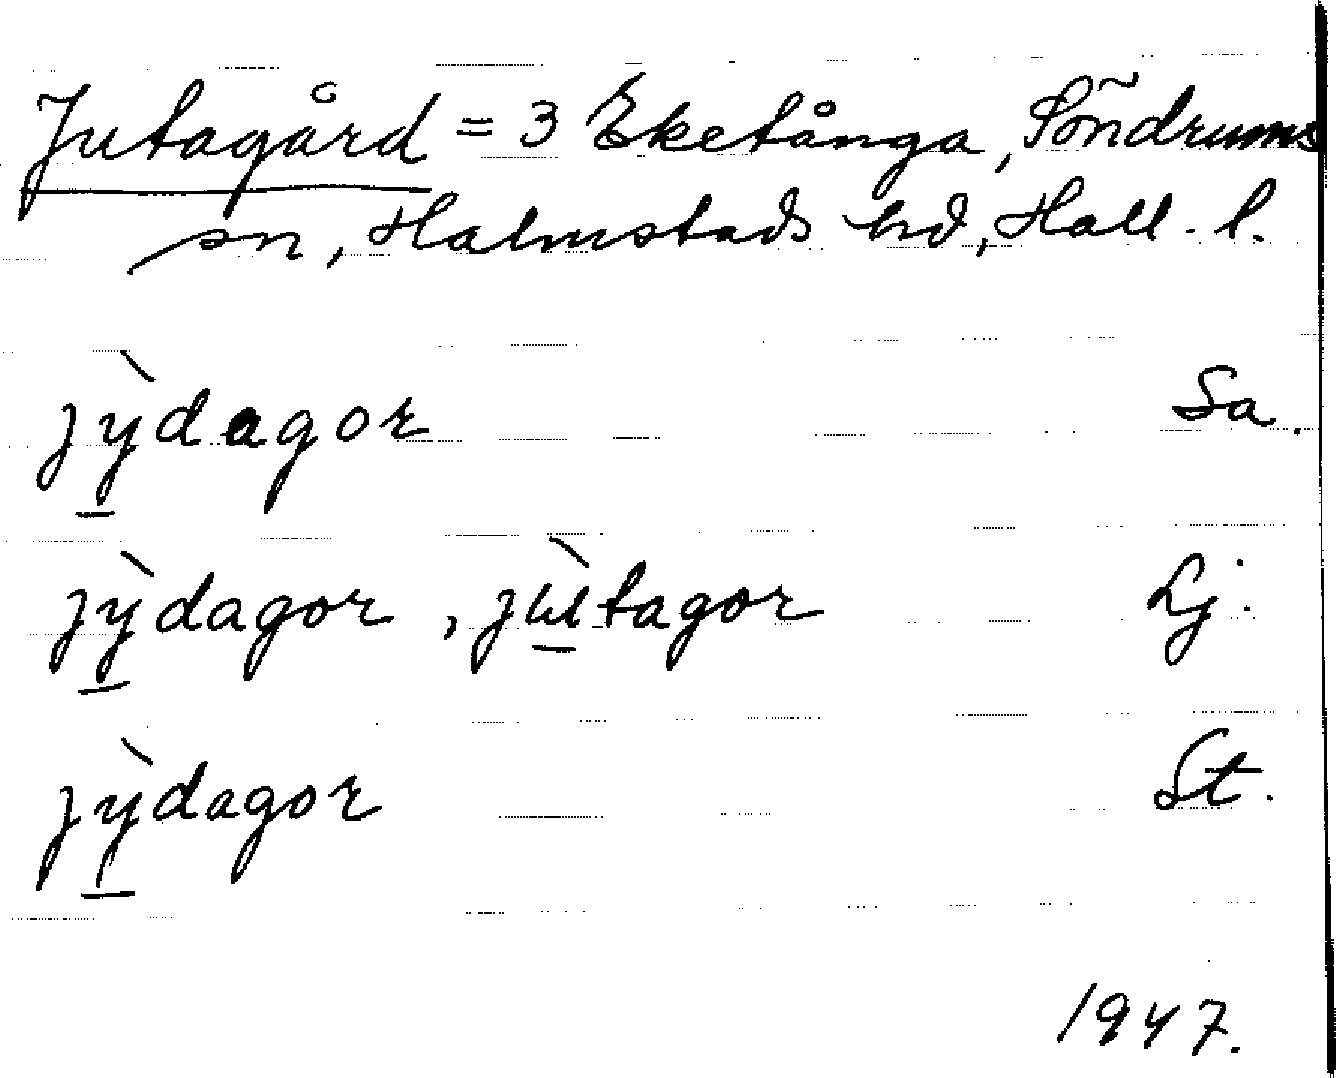 Jutagård = 3 Eketånga, Söndrums
sn, Halmstads hd, Hall. l.
jỳ̲dagor Sa.
jỳ̲dagor, jù̲tagor Lj.
jỳ̲dagor St.
1947.